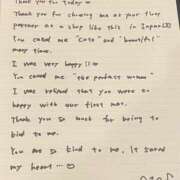 Thank you for today ♡
Thank you for choosing me as your first
partner at a shop like this in Japan
You called me "cute" and "beautiful"
many times.
I was very happy!!
You called me "the perfect woman"
I was relieved that you were so
happy with our first met.
Thank you so much for being to
kind to me.
You are so kind to me, it saved
my heart...